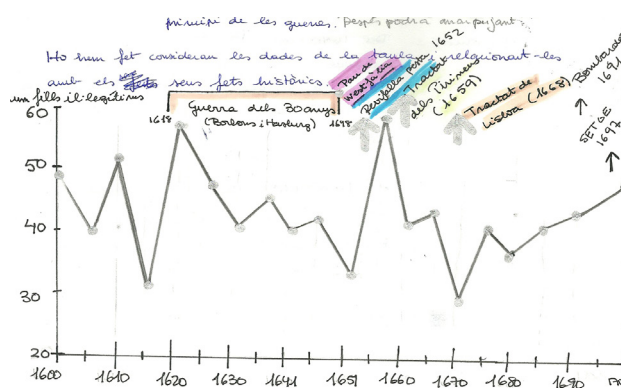 principi de les guerres. Després podria anar pujant.
Ho hem fet consideran les dades de la taula i relacionant-les
amb els seus fets històrics.
un fills il·legítims
Guerra dels 30 anys
(Borbons i Hasburg)
1618
1648
Pau de
Westfàlia
pesta 1652
Tractat
dels Pirineus
(1659)
Tractat de
Lisboa (1668)
Bombardeig
1691
SETGE
1697
60
50
40
30
20
1600
1610
1620
1630
1641
1651
1660
1670
1680
1690